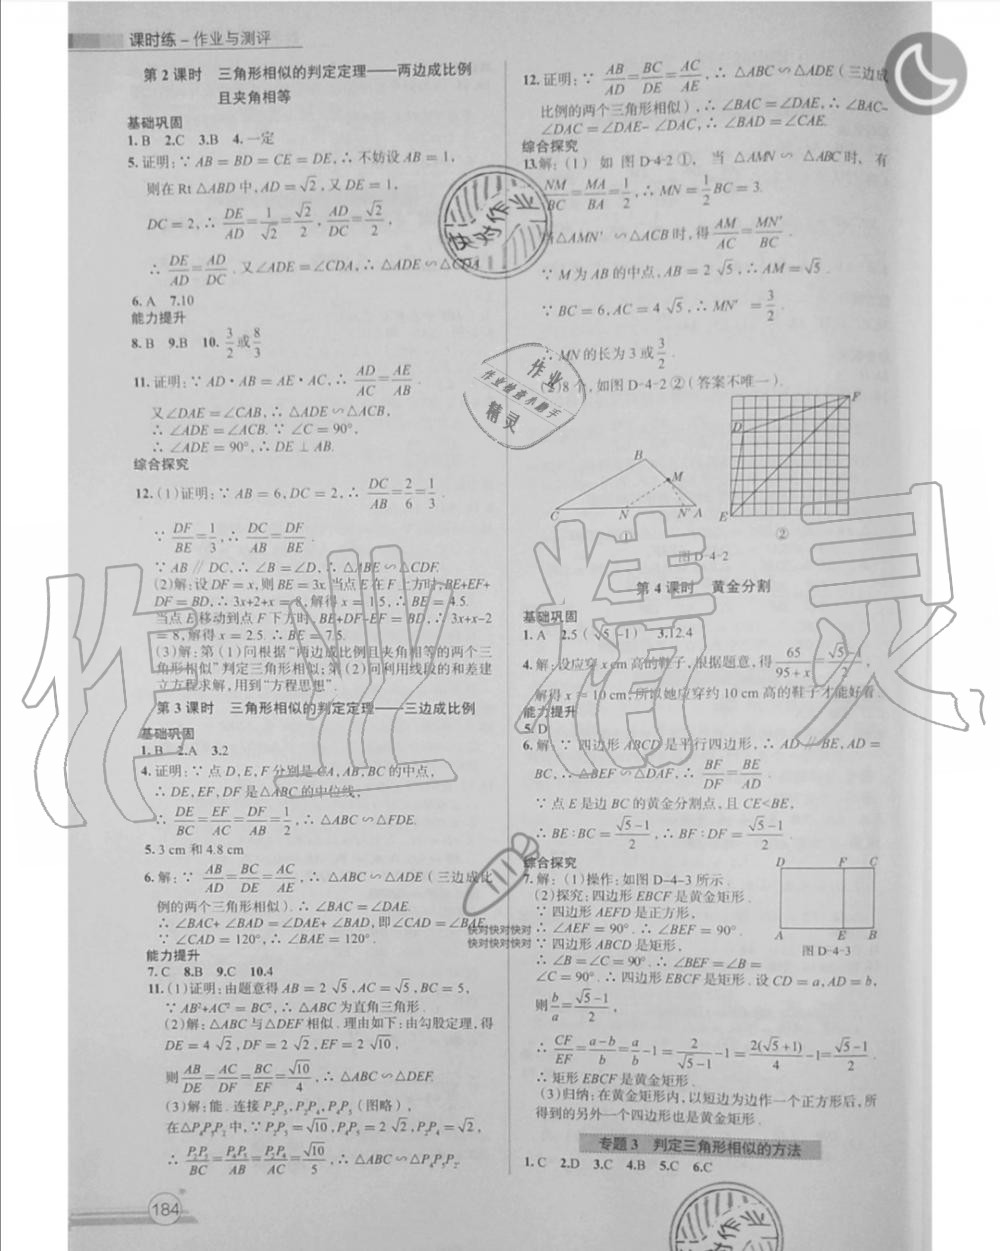 课时练－作业与测评
第2课时 三角形相似的判定定理——两边成比例
且夹角相等
基础巩固
1.B 2.C 3.B 4.一定
5.证明:∵AB=BD=CE=DE,∴不妨设AB=1,
则在Rt△ABD中,AD=√2,又DE=1,
DC=2,∴DE/AD=1/√2=√2/2,AD/DC=√2/2,
∴DE/AD=AD/DC.又∠ADE=∠CDA,∴△ADE∽△CDA.
6.A 7.10
能力提升
8.B 9.B 10.3/2或8/3
11.证明:∵AD·AB=AE·AC,∴AD/AC=AE/AB.
又∠DAE=∠CAB,∴△ADE∽△ACB,
∴∠ADE=∠ACB.∵∠C=90°,
∴∠ADE=90°,∴DE⊥AB.
综合探究
12.(1)证明:∵AB=6,DC=2,∴DC/AB=2/6=1/3.
∵DF/BE=1/3,∴DC/AB=DF/BE.
∵AB∥DC,∴∠B=∠D,∴△ABE∽△CDF.
(2)解:设DF=x,则BE=3x.当点E在F上方时,BE+EF+
DF=BD,∴3x+2+x=8,解得x=1.5,∴BE=4.5.
当点E移动到点F下方时,BE+DF-EF=BD,∴3x+x-2
=8,解得x=2.5.∴BE=7.5.
(3)解:第(1)问根据“两边成比例且夹角相等的两个三
角形相似”判定三角形相似;第(2)问利用线段的和差建
立方程求解,用到“方程思想”.
第3课时 三角形相似的判定定理——三边成比例
基础巩固
1.B 2.A 3.2
4.证明:∵点D,E,F分别是CA,AB,BC的中点,
∴DE,EF,DF是△ABC的中位线,
∴DE/BC=EF/AC=DF/AB=1/2,∴△ABC∽△FDE.
5.3 cm和4.8 cm
6.解:∵AB/AD=BC/DE=AC/AE,∴△ABC∽△ADE(三边成比
例的两个三角形相似).∴∠BAC=∠DAE.
∴∠BAC+∠BAD=∠DAE+∠BAD,即∠CAD=∠BAE.
∵∠CAD=120°,∴∠BAE=120°.
能力提升
7.C 8.B 9.C 10.4
11.(1)证明:由题意得AB=2√5,AC=√5,BC=5,
∵AB²+AC²=BC²,∴△ABC为直角三角形.
(2)解:△ABC与△DEF相似.理由如下:由勾股定理,得
DE=4√2,DF=2√2,EF=2√10,
则AB/DE=AC/DF=BC/EF=√10/4,∴△ABC∽△DEF.
(3)解:能.连接P₂P₅,P₂P₄,P₄P₅(图略),
在△P₄P₅P₂中,∵P₂P₅=√10,P₂P₄=2√2,P₄P₅=√2,
∴P₂P₅/BC=P₂P₄/AB=P₄P₅/AC=√10/5,∴△ABC∽△P₄P₅P₂.
184
12.证明:∵AB/AD=BC/DE=AC/AE,∴△ABC∽△ADE(三边成
比例的两个三角形相似),∴∠BAC=∠DAE,∴∠BAC-
∠DAC=∠DAE-∠DAC,∴∠BAD=∠CAE.
综合探究
13.解:(1)如图D-4-2①,当△AMN∽△ABC时,有
NM/BC=MA/BA=1/2,∴MN=1/2BC=3.
当△AMN′∽△ACB时,得AM/AC=MN′/BC.
∵M为AB的中点,AB=2√5,∴AM=√5.
∵BC=6,AC=4√5,∴MN′=3/2.
∴MN的长为3或3/2.
(2)8个,如图D-4-2②(答案不唯一).
B M C N N′ A ①
D F E ②
图D-4-2
第4课时 黄金分割
基础巩固
1.A 2.5(√5-1) 3.12.4
4.解:设应穿x cm高的鞋子,根据题意,得65/(95+x)=(√5-1)/2,
解得x=10 cm,所以她应穿约10 cm高的鞋子才能好看.
能力提升
5.D
6.解:∵四边形ABCD是平行四边形,∴AD∥BE,AD=
BC,∴△BEF∽△DAF,∴BF/DF=BE/AD.
∵点E是边BC的黄金分割点,且CE<BE,
∴BE:BC=(√5-1)/2,∴BF:DF=(√5-1)/2.
综合探究
7.解:(1)操作:如图D-4-3所示.
(2)探究:四边形EBCF是黄金矩形.
∵四边形AEFD是正方形,
∴∠AEF=90°.∴∠BEF=90°.
∵四边形ABCD是矩形,
∴∠B=∠C=90°.∴∠BEF=∠B=
∠C=90°.∴四边形EBCF是矩形.设CD=a,AD=b,
则b/a=(√5-1)/2,
∴CF/EF=(a-b)/b=a/b-1=2/(√5-1)-1=2(√5+1)/4-1=(√5-1)/2.
∴矩形EBCF是黄金矩形.
(3)归纳:在黄金矩形内,以短边为边作一个正方形后,所
得到的另外一个四边形也是黄金矩形.
D F C
A E B
图D-4-3
专题3 判定三角形相似的方法
1.C 2.D 3.C 4.B 5.C 6.C
快对作业
作业
作业检查小助手
精灵
快对快对快对
快对快对快对
作业精灵
快对作业